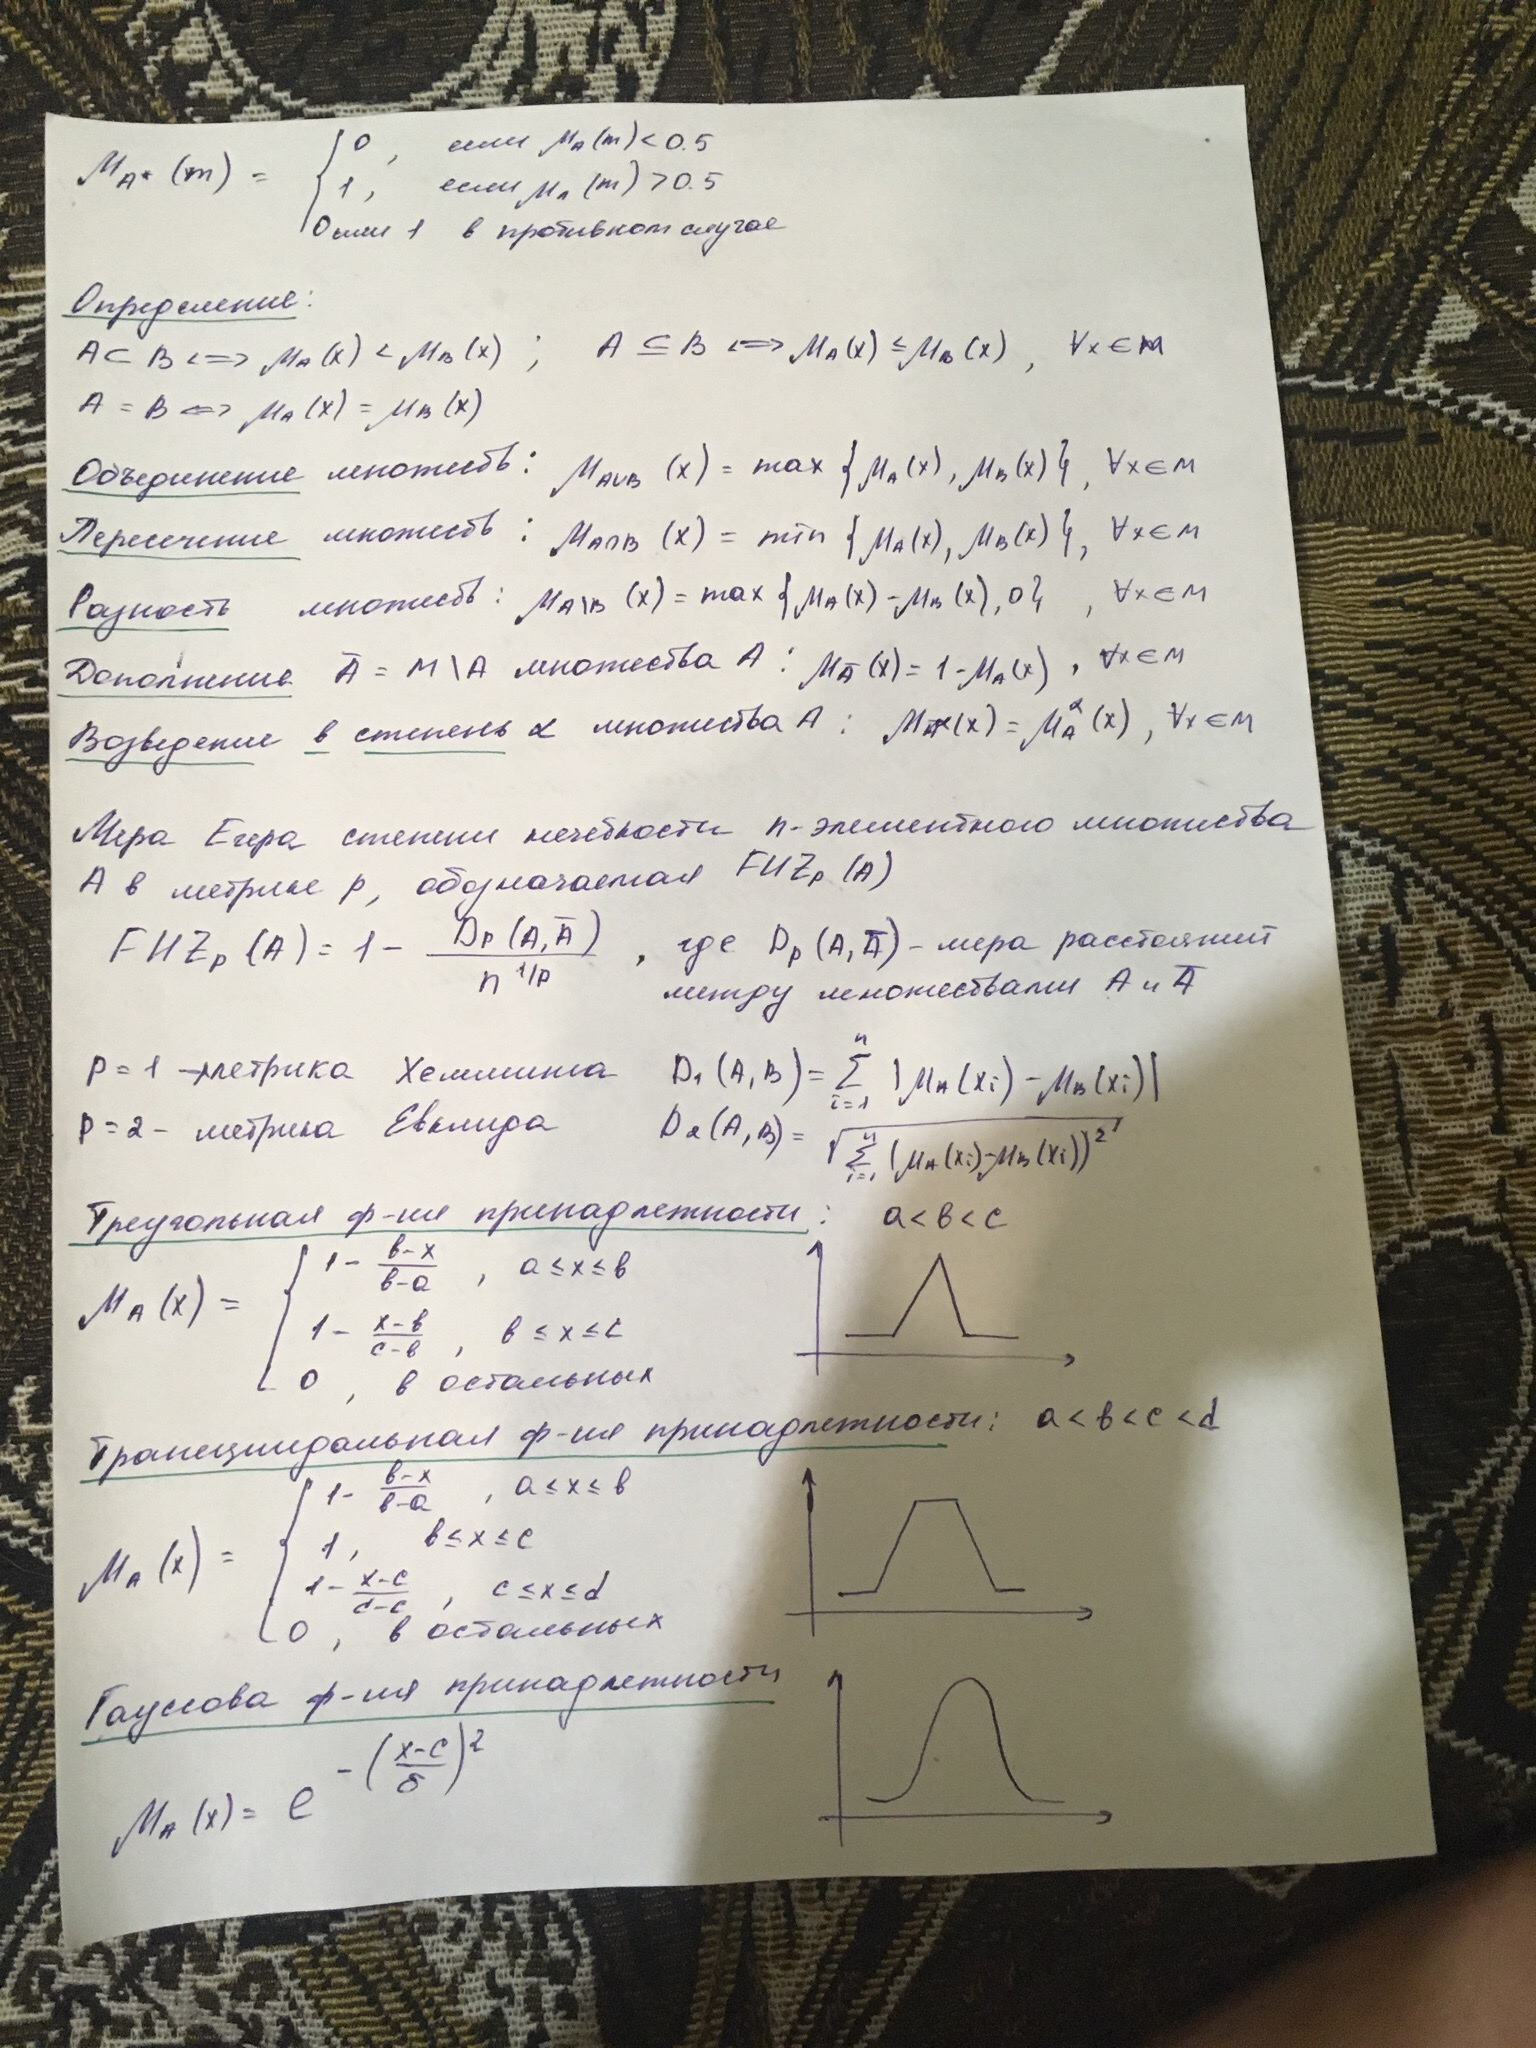 μ_A*(m) = { 0, если μ_A(m) < 0.5
1, если μ_A(m) > 0.5
0 или 1 в противном случае
Определение:
A ⊂ B <=> μ_A(x) < μ_B(x) ; A ⊆ B <=> μ_A(x) ≤ μ_B(x) , ∀x∈M
A = B <=> μ_A(x) = μ_B(x)
Объединение множеств: μ_A∪B (x) = max {μ_A(x), μ_B(x)}, ∀x∈M
Пересечение множеств : μ_A∩B (x) = min {μ_A(x), μ_B(x)}, ∀x∈M
Разность множеств: μ_A\B (x) = max {μ_A(x) - μ_B(x), 0} , ∀x∈M
Дополнение Ā = M \ A множества A : μ_Ā(x) = 1 - μ_A(x) , ∀x∈M
Возведение в степень α множества A : μ_A^α(x) = μ_A^α(x), ∀x∈M
Мера Егера степени нечёткости n-элементного множества
A в метрике p, обозначаемая FUZ_p (A)
FUZ_p (A) = 1 - D_p(A, Ā) / n^(1/p) , где D_p (A, Ā) - мера расстояний
между множествами A и Ā
p = 1 - метрика Хемминга D_1 (A, B) = Σ_{i=1}^{n} |μ_A(x_i) - μ_B(x_i)|
p = 2 - метрика Евклида D_2 (A, B) = √(Σ_{i=1}^{n} (μ_A(x_i) - μ_B(x_i))^2)
Треугольная ф-ия принадлежности: a < в < c
μ_A(x) = { 1 - (в-x)/(в-a) , a ≤ x ≤ в
1 - (x-в)/(c-в) , в ≤ x ≤ c
0 , в остальных
Трапециидальная ф-ия принадлежности: a < в < c < d
μ_A(x) = { 1 - (в-x)/(в-a) , a ≤ x ≤ в
1 , в ≤ x ≤ c
1 - (x-c)/(d-c) , c ≤ x ≤ d
0 , в остальных
Гауссова ф-ия принадлежности
μ_A(x) = e^(-((x-c)/σ)^2)